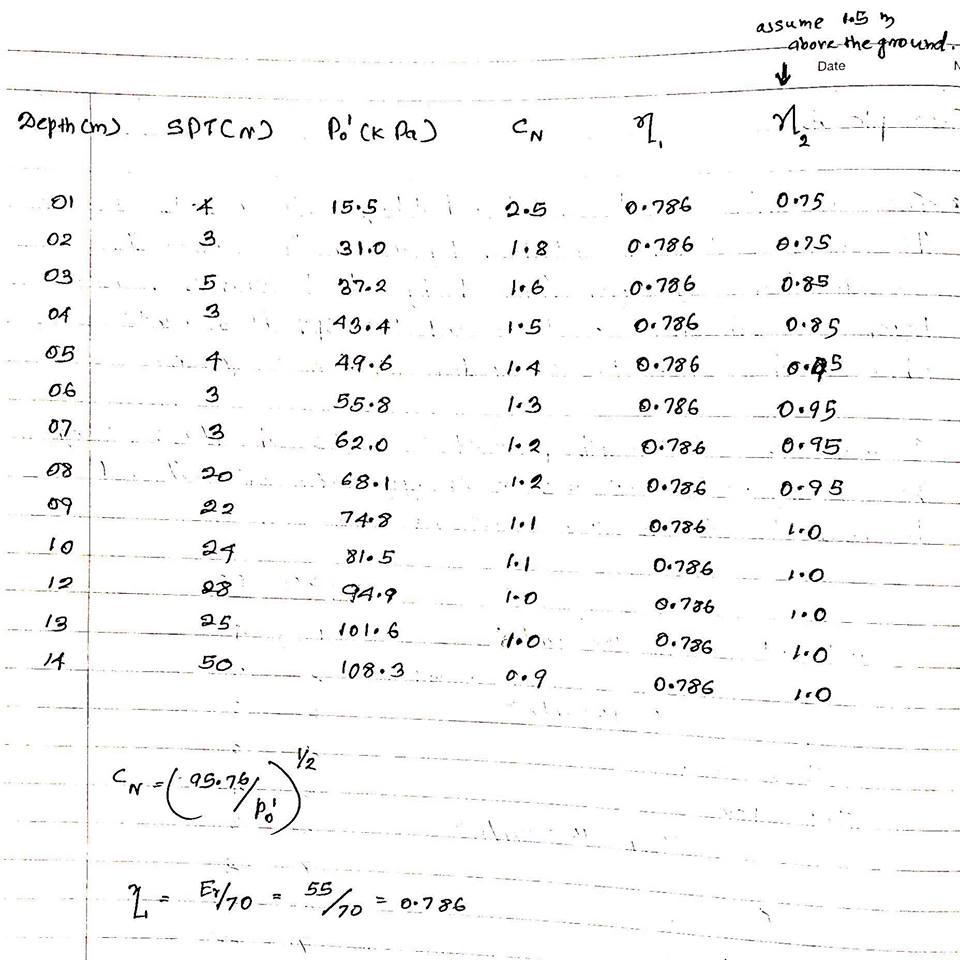 assume 1.5 m
above the ground.
↓ Date N
Depth (m) SPT (N) P₀' (K Pa) C_N η₁ η₂
01 4 15.5 2.5 0.786 0.75
02 3 31.0 1.8 0.786 0.75
03 5 37.2 1.6 0.786 0.85
04 3 43.4 1.5 0.786 0.85
05 4 49.6 1.4 0.786
06 3 55.8 1.3 0.786 0.95
07 3 62.0 1.2 0.786 0.95
08 20 68.1 1.2 0.786 0.95
09 22 74.8 1.1 0.786 1.0
10 24 81.5 1.1 0.786 1.0
12 28 94.9 1.0 0.786 1.0
13 25 101.6 1.0 0.786 1.0
14 50 108.3 0.9 0.786 1.0
C_N = (95.76/P₀')^1/2
η = Er/70 = 55/70 = 0.786